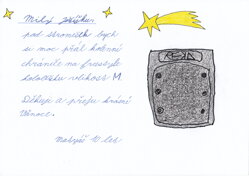 Milý Ježíšku,
pod stromeček bych
si moc přál kolenní
chrániče na freestyle
koloběžku velikost M.
Děkuji a přeji krásné
Vánoce.
Matyáš 10 let